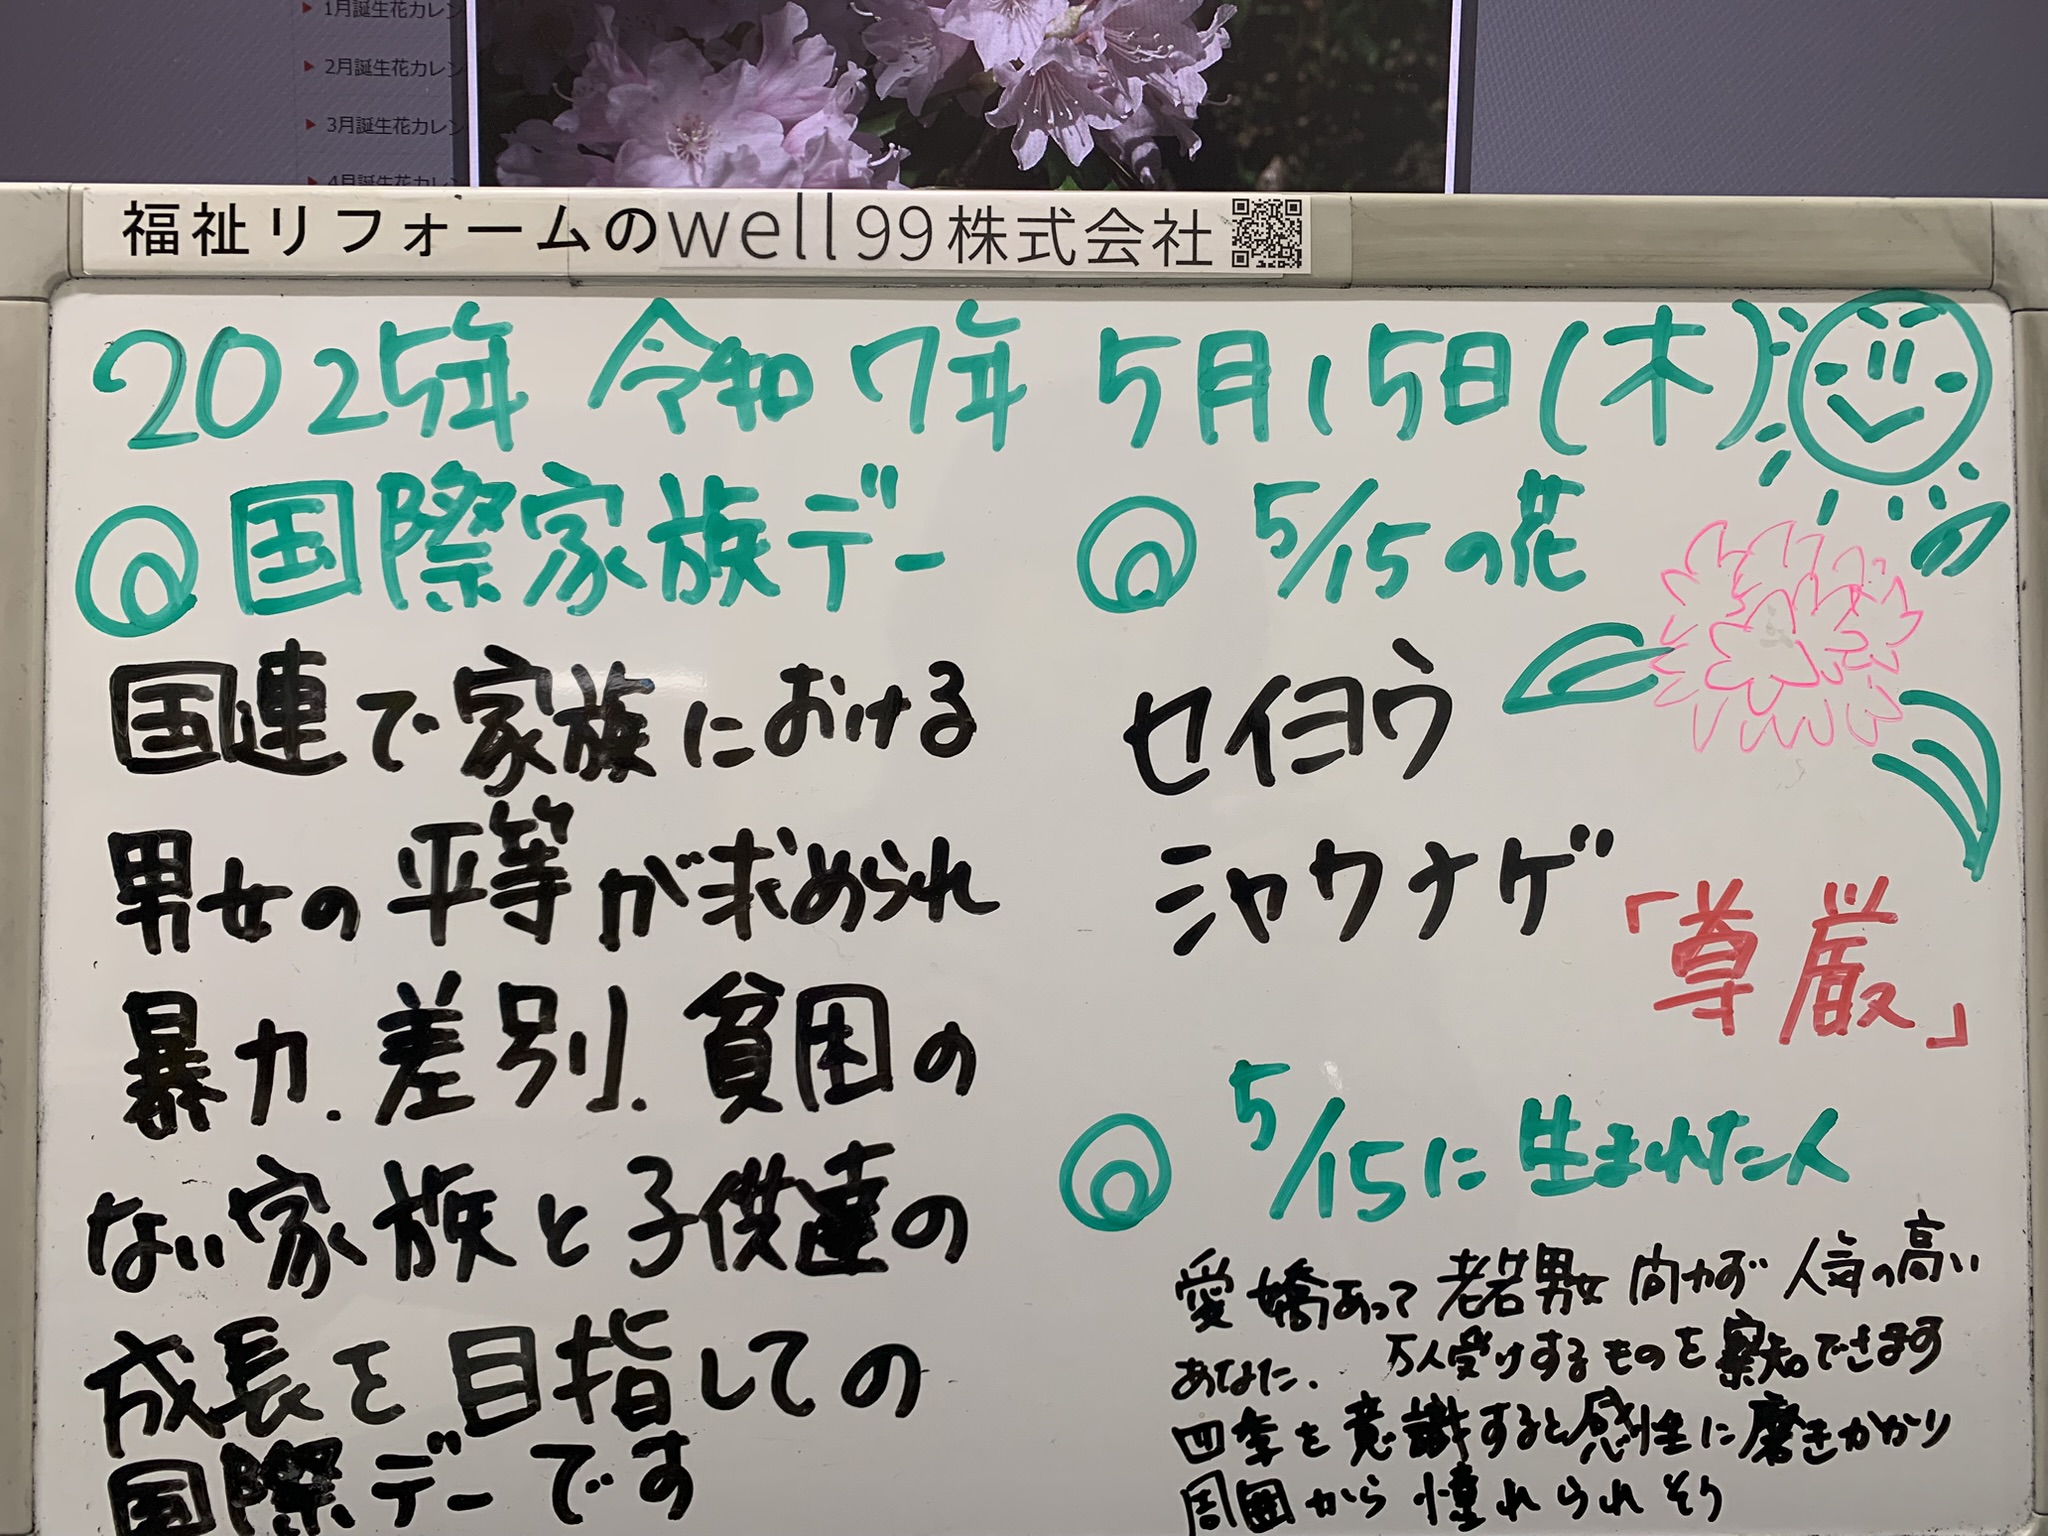 ▶ 1月誕生花カレン
▶ 2月誕生花カレン
▶ 3月誕生花カレン
▶ 4月誕生花カレン
福祉リフォームのwell99株式会社
2025年 令和7年 5月15日(木)
◎国際家族デー
国連で家族における
男女の平等が求められ
暴力、差別、貧困の
ない家族と子供達の
成長を目指しての
国際デーです
◎5/15の花
セイヨウ
シャクナゲ
「尊厳」
◎5/15に生まれた人
愛嬌あって老若男女問わず人気の高い
あなた、万人受けするものを察知できます
四季を意識すると感性に磨きかかり
周囲から憧れられそう